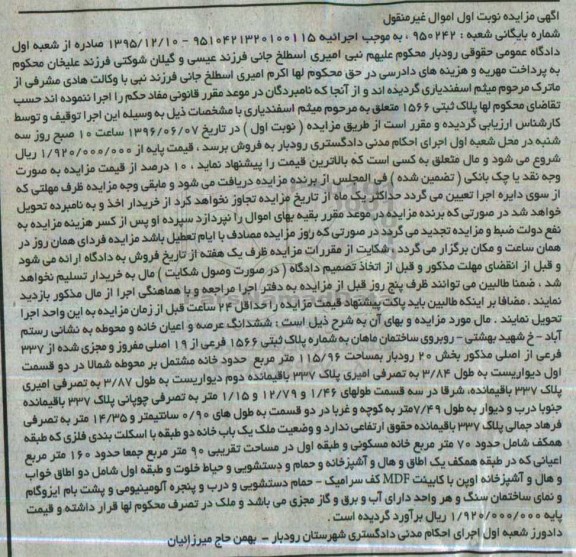 آگهی مزایده نوبت اول اموال غیرمنقول
شماره بایگانی شعبه : ۹۵۰۲۴۲ ، به موجب اجرائیه ۹۵۱۰۴۲۱۳۲۰۱۰۰۱۱۵ - ۱۳۹۵/۱۲/۱۰ صادره از شعبه اول
دادگاه عمومی حقوقی رودبار محکوم علیهم نبی امیری اسطلخ جانی فرزند عیسی و گیلان شوکتی فرزند علیخان محکوم
به پرداخت مهریه و هزینه های دادرسی در حق محکوم لها اکرم امیری اسطلخ جانی فرزند نبی با وکالت هادی مشرفی از
ماترک مرحوم میثم اسفندیاری گردیده اند و از آنجا که نامبردگان در موعد مقرر قانونی مفاد حکم را اجرا ننموده اند حسب
تقاضای محکوم لها پلاک ثبتی ۱۵۶۶ متعلق به مرحوم میثم اسفندیاری با مشخصات ذیل به وسیله این اجرا توقیف و توسط
کارشناس ارزیابی گردیده و مقرر است از طریق مزایده ( نوبت اول ) در تاریخ ۱۳۹۶/۰۶/۰۷ ساعت ۱۰ صبح روز سه
شنبه در محل شعبه اول اجرای احکام مدنی دادگستری رودبار به فروش برسد ، قیمت پایه از ۱/۹۲۰/۰۰۰/۰۰۰ ریال
شروع می شود و مال متعلق به کسی است که بالاترین قیمت را پیشنهاد نماید ، ۱۰ درصد از قیمت مزایده به صورت
وجه نقد یا چک بانکی ( تضمین شده ) فی المجلس از برنده مزایده دریافت می شود و مابقی وجه مزایده ظرف مهلتی که
از سوی دایره اجرا تعیین می گردد حداکثر یک ماه از تاریخ مزایده تجاوز نخواهد کرد از خریدار اخذ و به نامبرده تحویل
خواهد شد در صورتی که برنده مزایده در موعد مقرر بقیه بهای اموال را نپردازد سپرده او پس از کسر هزینه مزایده به
نفع دولت ضبط و مزایده تجدید می گردد در صورتی که روز مزایده مصادف با ایام تعطیل باشد مزایده فردای همان روز در
همان ساعت و مکان برگزار می گردد ، شکایت از مقررات مزایده ظرف یک هفته از تاریخ فروش به دادگاه ارائه می شود
و قبل از انقضای مهلت مذکور و قبل از اتخاذ تصمیم دادگاه ( در صورت وصول شکایت ) مال به خریدار تسلیم نخواهد
شد ، ضمنا طالبین می توانند ظرف پنج روز قبل از مزایده به دفتر اجرا مراجعه و با هماهنگی اجرا از مال مذکور بازدید
نمایند . مضافا بر اینکه طالبین باید پاکت پیشنهاد قیمت مزایده را حداقل ۲۴ ساعت قبل از زمان مزایده به این واحد اجرا
تحویل نمایند . مال مورد مزایده و بهای آن به شرح ذیل است : ششدانگ عرصه و اعیان خانه و محوطه به نشانی رستم
آباد - خ شهید بهشتی - روبروی ساختمان ماهان به شماره پلاک ثبتی ۱۵۶۶ فرعی از ۱۹ اصلی مفروز و مجزی شده از ۳۳۷
فرعی از اصلی مذکور بخش ۲۰ رودبار بمساحت ۱۱۵/۹۶ متر مربع حدود خانه مشتمل بر محوطه شمالا در دو قسمت
اول دیواریست به طول ۳/۸۴ به تصرفی امیری پلاک ۳۳۷ باقیمانده دوم دیواریست به طول ۳/۸۷ به تصرفی امیری
پلاک ۳۳۷ باقیمانده، شرقا در سه قسمت طولهای ۱/۴۶ و ۱۲/۷۹ و ۱/۱۵ متر به تصرفی چوپانی پلاک ۳۳۷ باقیمانده
جنوبا درب و دیوار به طول ۷/۴۹متر به کوچه و غربا در دو قسمت به طول های ۰/۹۰ سانتیمتر و ۱۴/۳۵ متر به تصرفی
فرهاد جمالی پلاک ۳۳۷ باقیمانده حقوق ارتفاعی ندارد و وضعیت ملک یک باب خانه دو طبقه با اسکلت بندی فلزی که طبقه
همکف شامل حدود ۷۰ متر مربع خانه مسکونی و طبقه اول در مساحت تقریبی ۹۰ متر مربع جمعا حدود ۱۶۰ متر مربع
اعیانی که در طبقه همکف یک اطاق و هال و آشپزخانه و حمام و دستشویی و حیاط خلوت و طبقه اول شامل دو اطاق خواب
و هال و آشپزخانه اوپن با کابینت MDF کف سرامیک - حمام دستشویی و درب و پنجره آلومینیومی و پشت بام ایزوگام
و نمای ساختمان سنگ و هر واحد دارای آب و برق و گاز مجزی می باشد و ملک در تصرف محکوم لها قرار داشته و قیمت
پایه ۱/۹۲۰/۰۰۰/۰۰۰ ریال برآورد گردیده است .
دادورز شعبه اول اجرای احکام مدنی دادگستری شهرستان رودبار - بهمن حاج میرزائیان